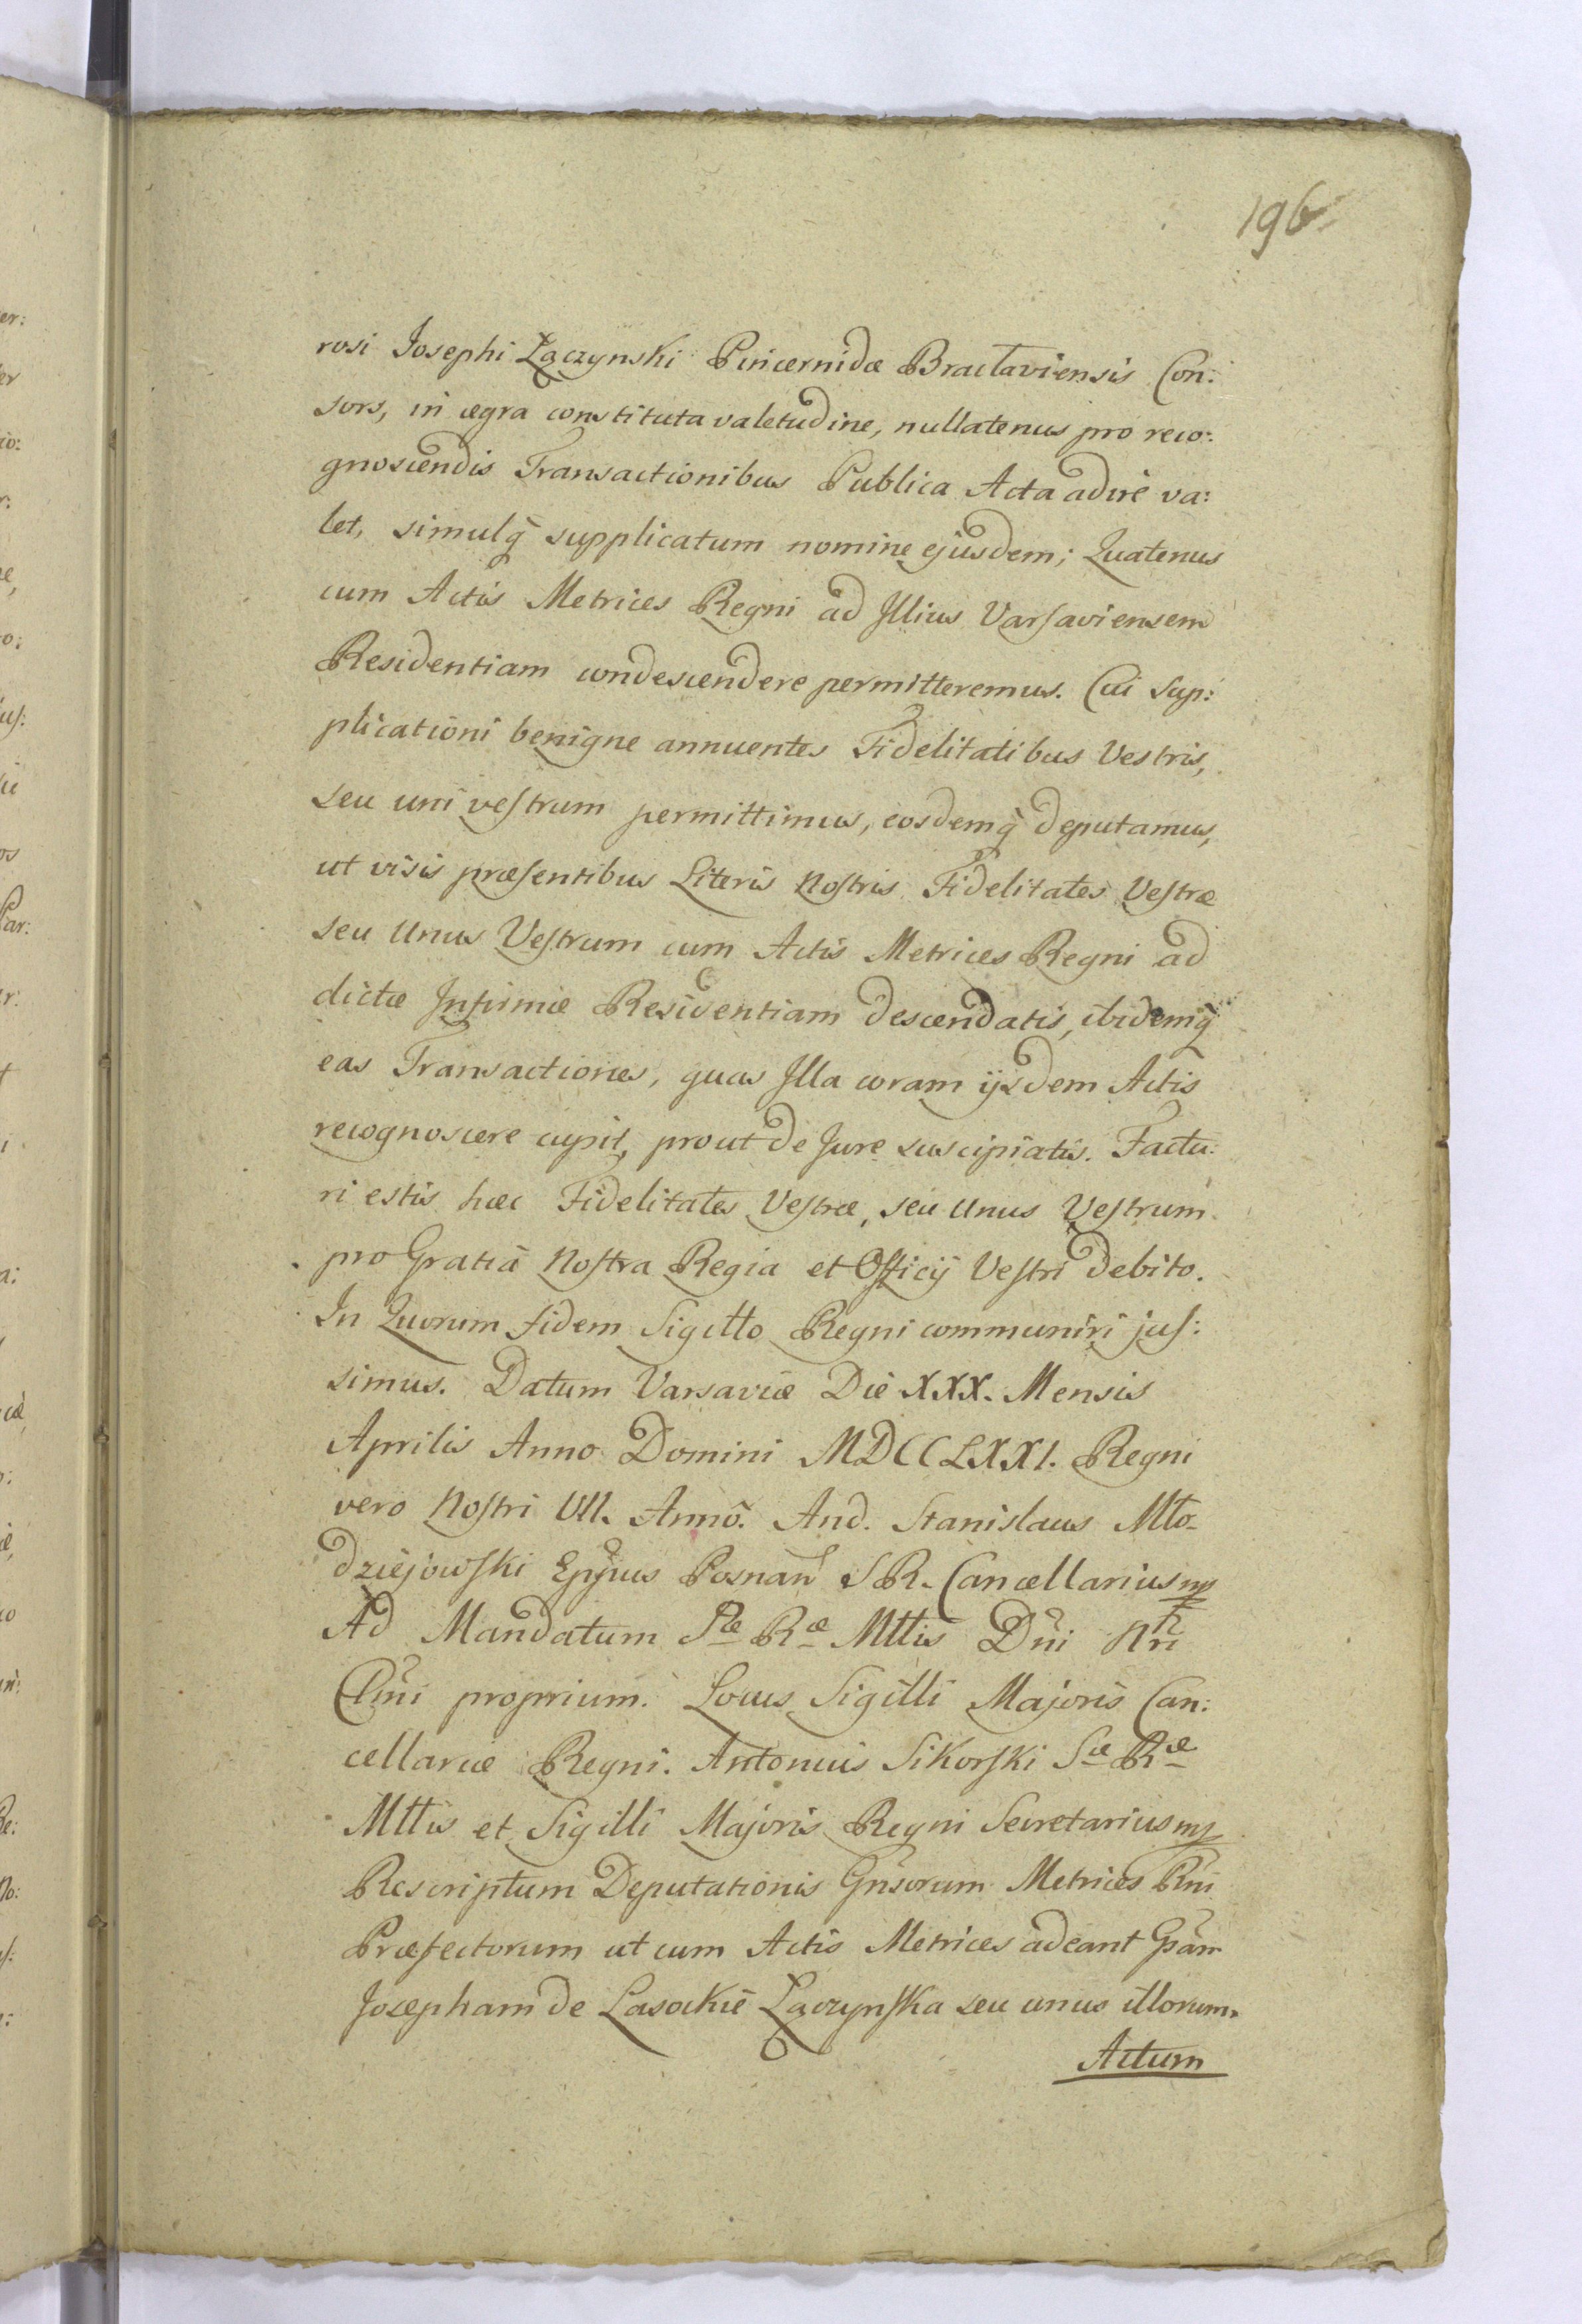 196
rosi Josephi Łączynski Pincernidæ Bractaviensis Con:
sors, in ægra constituta valetudine, nullatenus pro reco:
gnoscendis Transactionibus Publica Acta adire va:
let, simulq̀ supplicatum nomine ejusdem; Quatenus
cum Actis Metrices Regni ad Illius Varsaviensem
Residentiam condescendere permitteremus. Cui Sup:
plicationi benigne annuentes Fidelitatibus Vestris,
seu uni vestrum permittimus, eosdemq̀ deputamus,
ut visis præsentibus Literis Nostris Fidelitates Vestræ
seu Unus Vestrum cum Actis Metrices Regni ad
dictæ Infirmæ Residentiam descendatis, ibidemq̀
eas Transactiones, quas Illa coram ijsdem Actis
recognoscere cupit, prout de Jure suscipiatis. Factu:
ri estis hæc Fidelitates Vestræ, seu Unus Vestrum
pro Gratia Nostra Regia et Officij Vestri debito.
In Quorum fidem Sigillo Regni communiri jus:
simus. Datum Varsaviæ Die XXX. Mensis
Aprilis Anno Domini MDCCLXXI. Regni
vero Nostri VII. Anno. And. Stanislaus Mło-
dziejowski Eppus Posnan̄ S R. Cancellarius mp
Ad Mandatum S<sup>æ</sup> R<sup>æ</sup> Mttis Dn̄i Nr̄i
Clm̄i proprium. Locus Sigilli Majoris Can:
cellariæ Regni. Antonius Sikorski S<sup>æ</sup> R<sup>æ</sup>
Mttis et Sigilli Majoris Regni Secretarius mp
Rescriptum Deputationis Gn̄sorum Metrices Rn̄i
Præfectorum ut cum Actis Metrices adeant Gsam
Josepham de Lasockie Łączynska seu unus illorum.
Actum